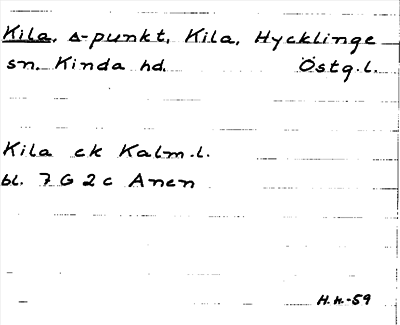 Kila, ∆-punkt, Kila, Hycklinge
sn. Kinda hd. Östg.l.
Kila ek Kalm.l.
bl. 7 G 2 c Anen
H.n.-59